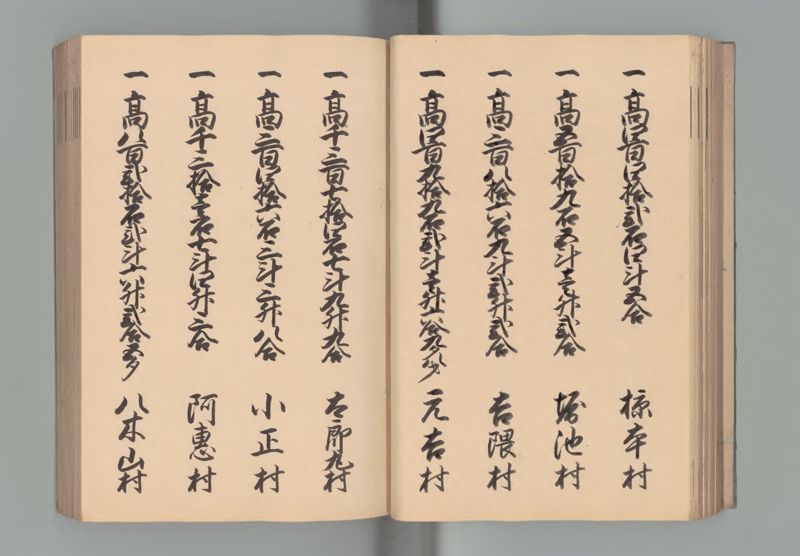 一 高四百四拾弐石四斗五合 椋本村
一 高五百拾九石五斗壱升弐合 堀池村
一 高三百八拾六石九斗弐升弐合 吉隈村
一 高四百九拾九石弐斗壱升六合九 元吉村
一 高千三百七拾四石七斗九升九合 太郎丸村
一 高三百四拾六石三斗三升八合 小正村
一 高千三拾壱石七斗四升三合 阿惠村
一 高八百弐拾石弐斗六升弐合五夕 八木山村